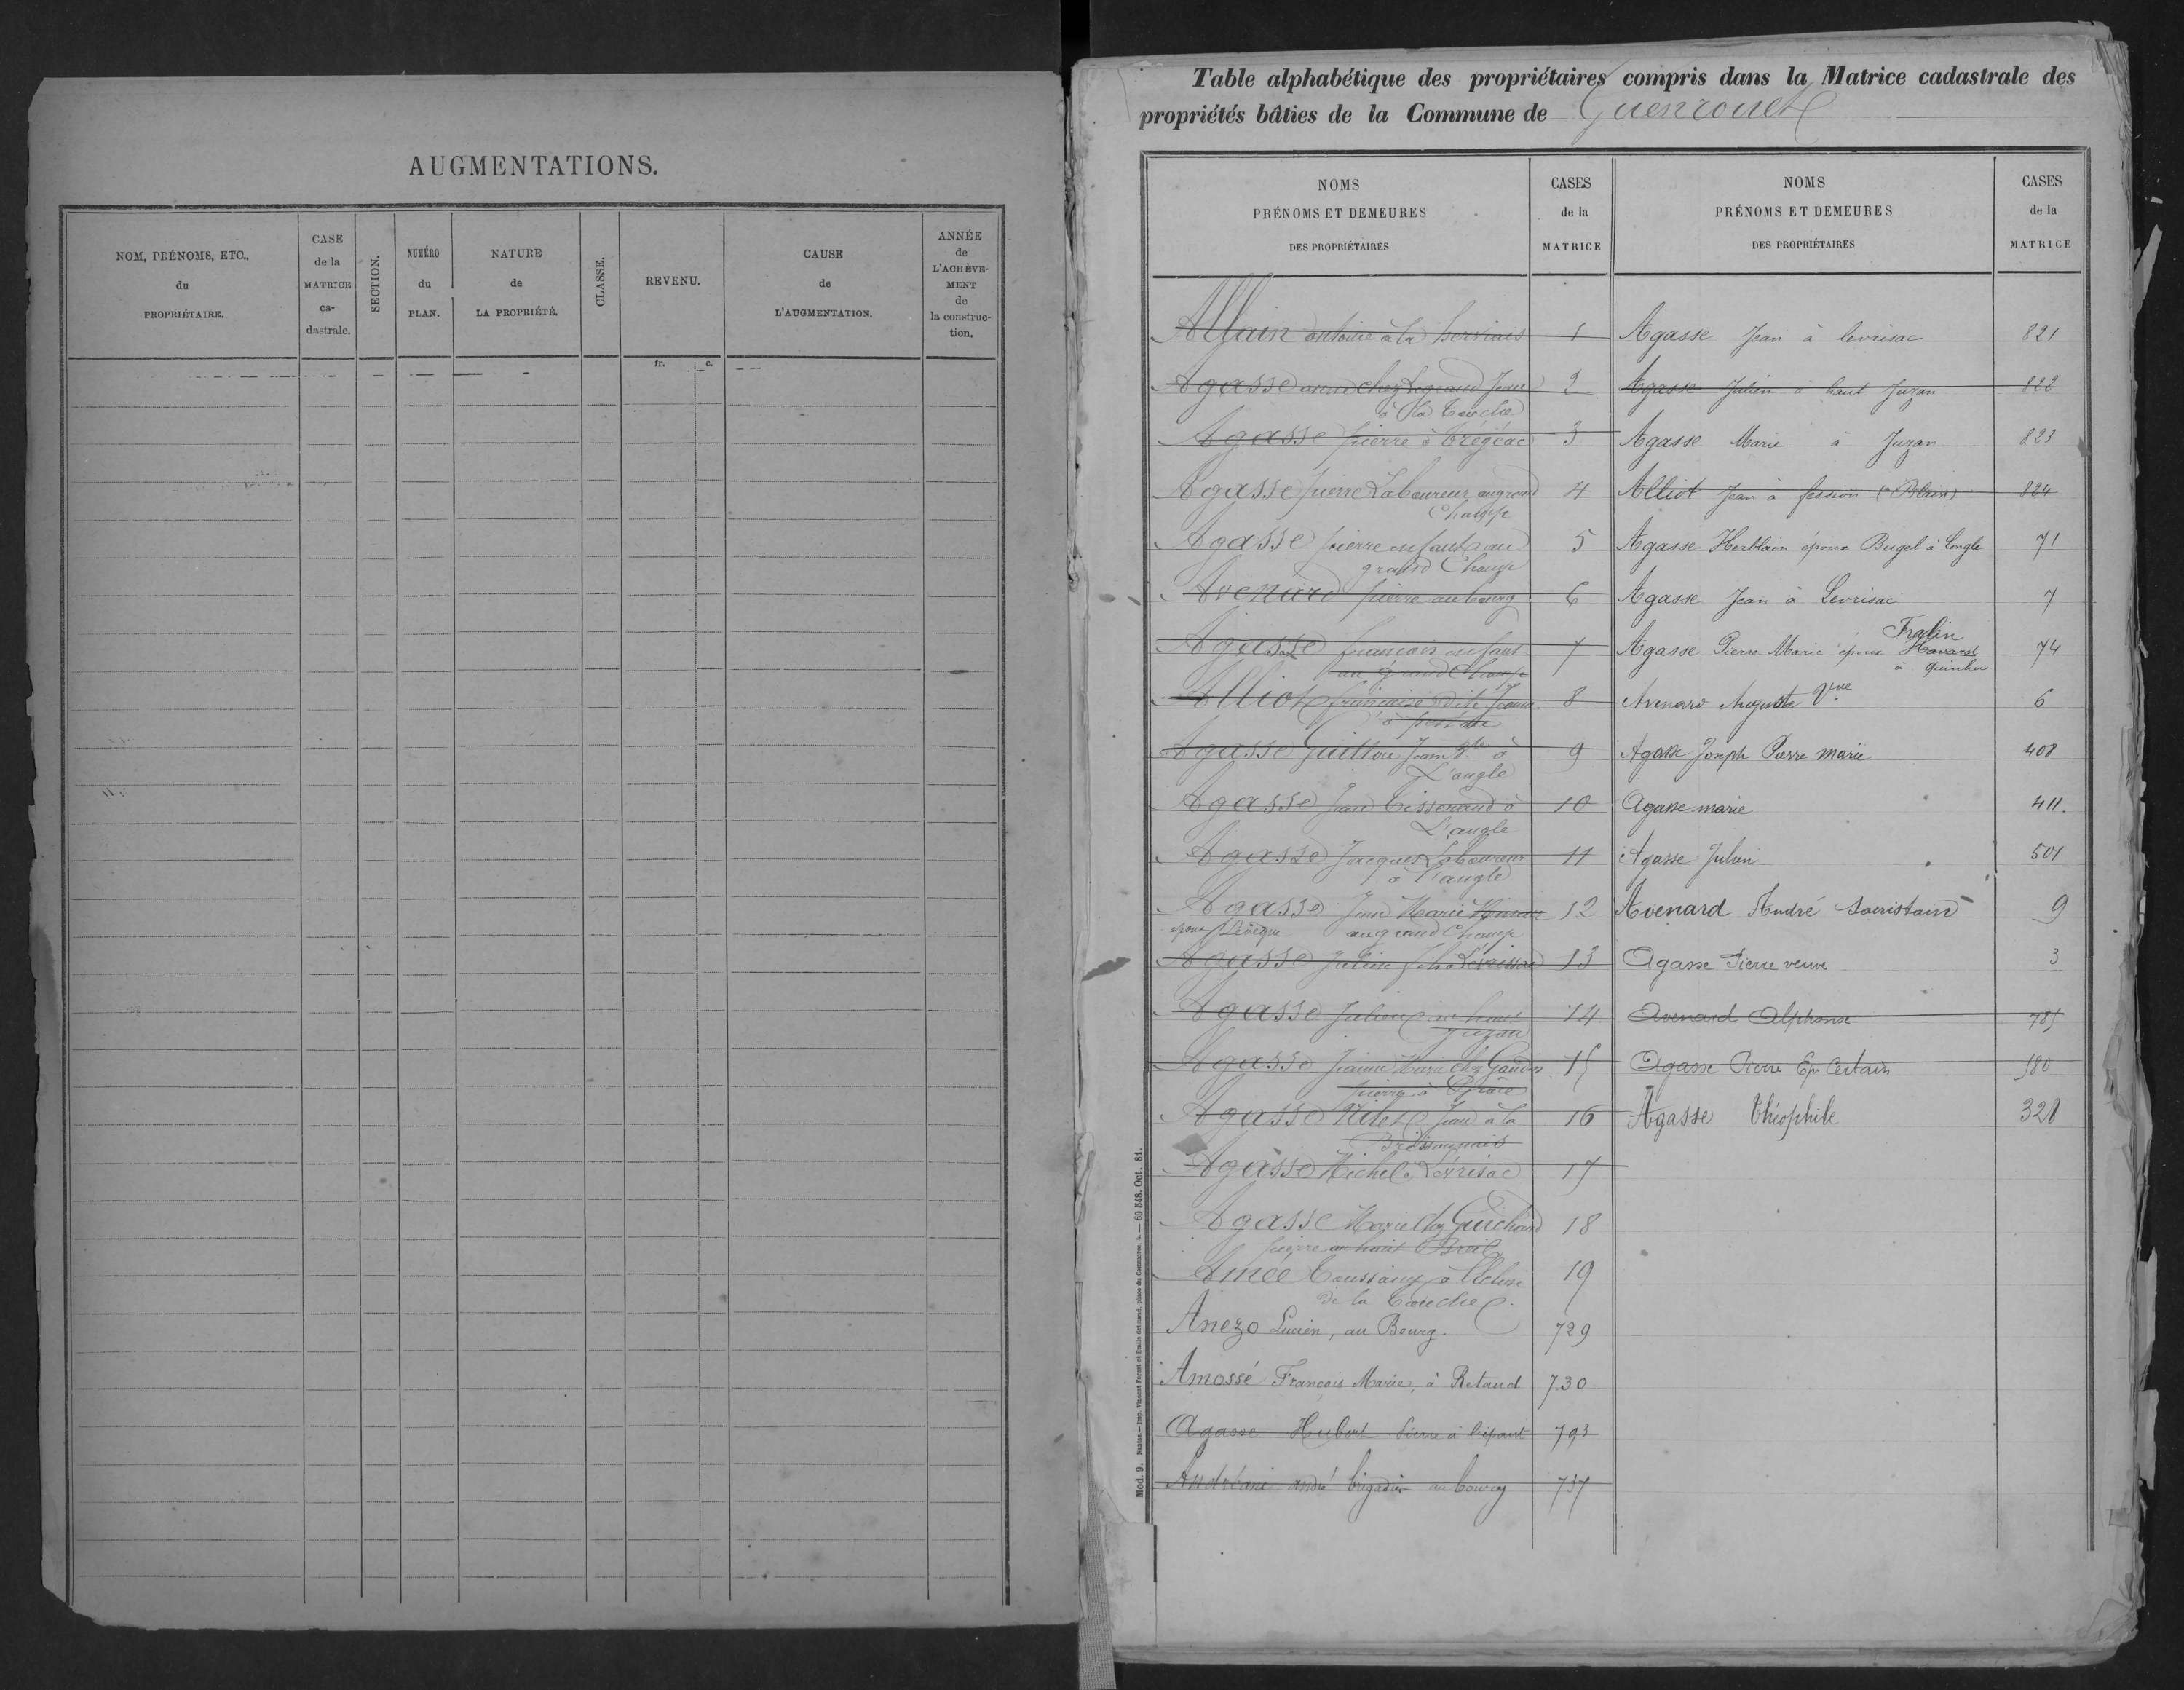 AUGMENTATIONS.
NOM, PRÉNOMS, ETC.,
du
PROPRIÉTAIRE.
CASE
de la
MATRICE
ca-
dastrale.
SECTION.
NUMÉRO
du
PLAN.
NATURE
de
LA PROPRIÉTÉ.
CLASSE.
REVENU.
CAUSE
de
L'AUGMENTATION.
ANNÉE
de
L'ACHÈVE-
MENT
de
la construc-
tion.
fr. c.
Table alphabétique des propriétaires compris dans la Matrice cadastrale des
propriétés bâties de la Commune de Guenrouet
NOMS
PRÉNOMS ET DEMEURES
DES PROPRIÉTAIRES
CASES
de la
MATRICE
NOMS
PRÉNOMS ET DEMEURES
DES PROPRIÉTAIRES
CASES
de la
MATRICE
Allain antoine à la 1
Agasse chez Legrand Jean 2
à la Touche
Agasse pierre à Trégéac 3
Agasse pierre Laboureur au grand 4
Champ
Agasse pierre enfant au 5
grand Champ
Avenard pierre au bourg 6
Agasse francois enfant 7
au grand Champ
Alliot francoise dite Jeanne 8
Agasse Guillou Jean Bte à 9
L'angle
Agasse Jean Tisserand à 10
L'angle
Agasse Jacques Laboureur 11
à l'angle
Agasse Jean Marie 12
epoux Levêque au grand Champ
Agasse Julien fils Levrissac 13
Agasse Julien au haut 14
Juzan
Agasse Jeanne Marie chez Gaudin 15
pierre à
Agasse Jean à la 16
Agasse Michel à Levrisac 17
Agasse Marie chez Guichard 18
pierre au haut
Amée Toussaint à l'écluse 19
de la Touche.
Anezo Lucien, au Bourg. 729
Amossé François Marie, à Retaud 730
Agasse Hubert Pierre à 793
Andréani andré brigadier au bourg 737
Agasse Jean à levrisac 821
Agasse Julien à haut Juzan 822
Agasse Marie à Juzan 823
Alliot Jean à (Blain) 824
Agasse Herblain époux Bugel à Longle 71
Agasse Jean à Levrisac 7
Fralin
Agasse Pierre Marie époux Havard 74
à quinhu
Avenard Auguste Vve 6
Agasse Joseph Pierre marie 408
Agasse marie 411.
Agasse Julien 501
Avenard André Sacristain 9
Agasse Pierre veuve 3
Avenard Alphonse 785
Agasse Pierre Ep Certain 580
Agasse Théophile 328
Mod. 9. Nantes.— Imp. Vincent Forest et Émile Grimaud, place du Commerce, 4. — 69 348. Oct. 81.